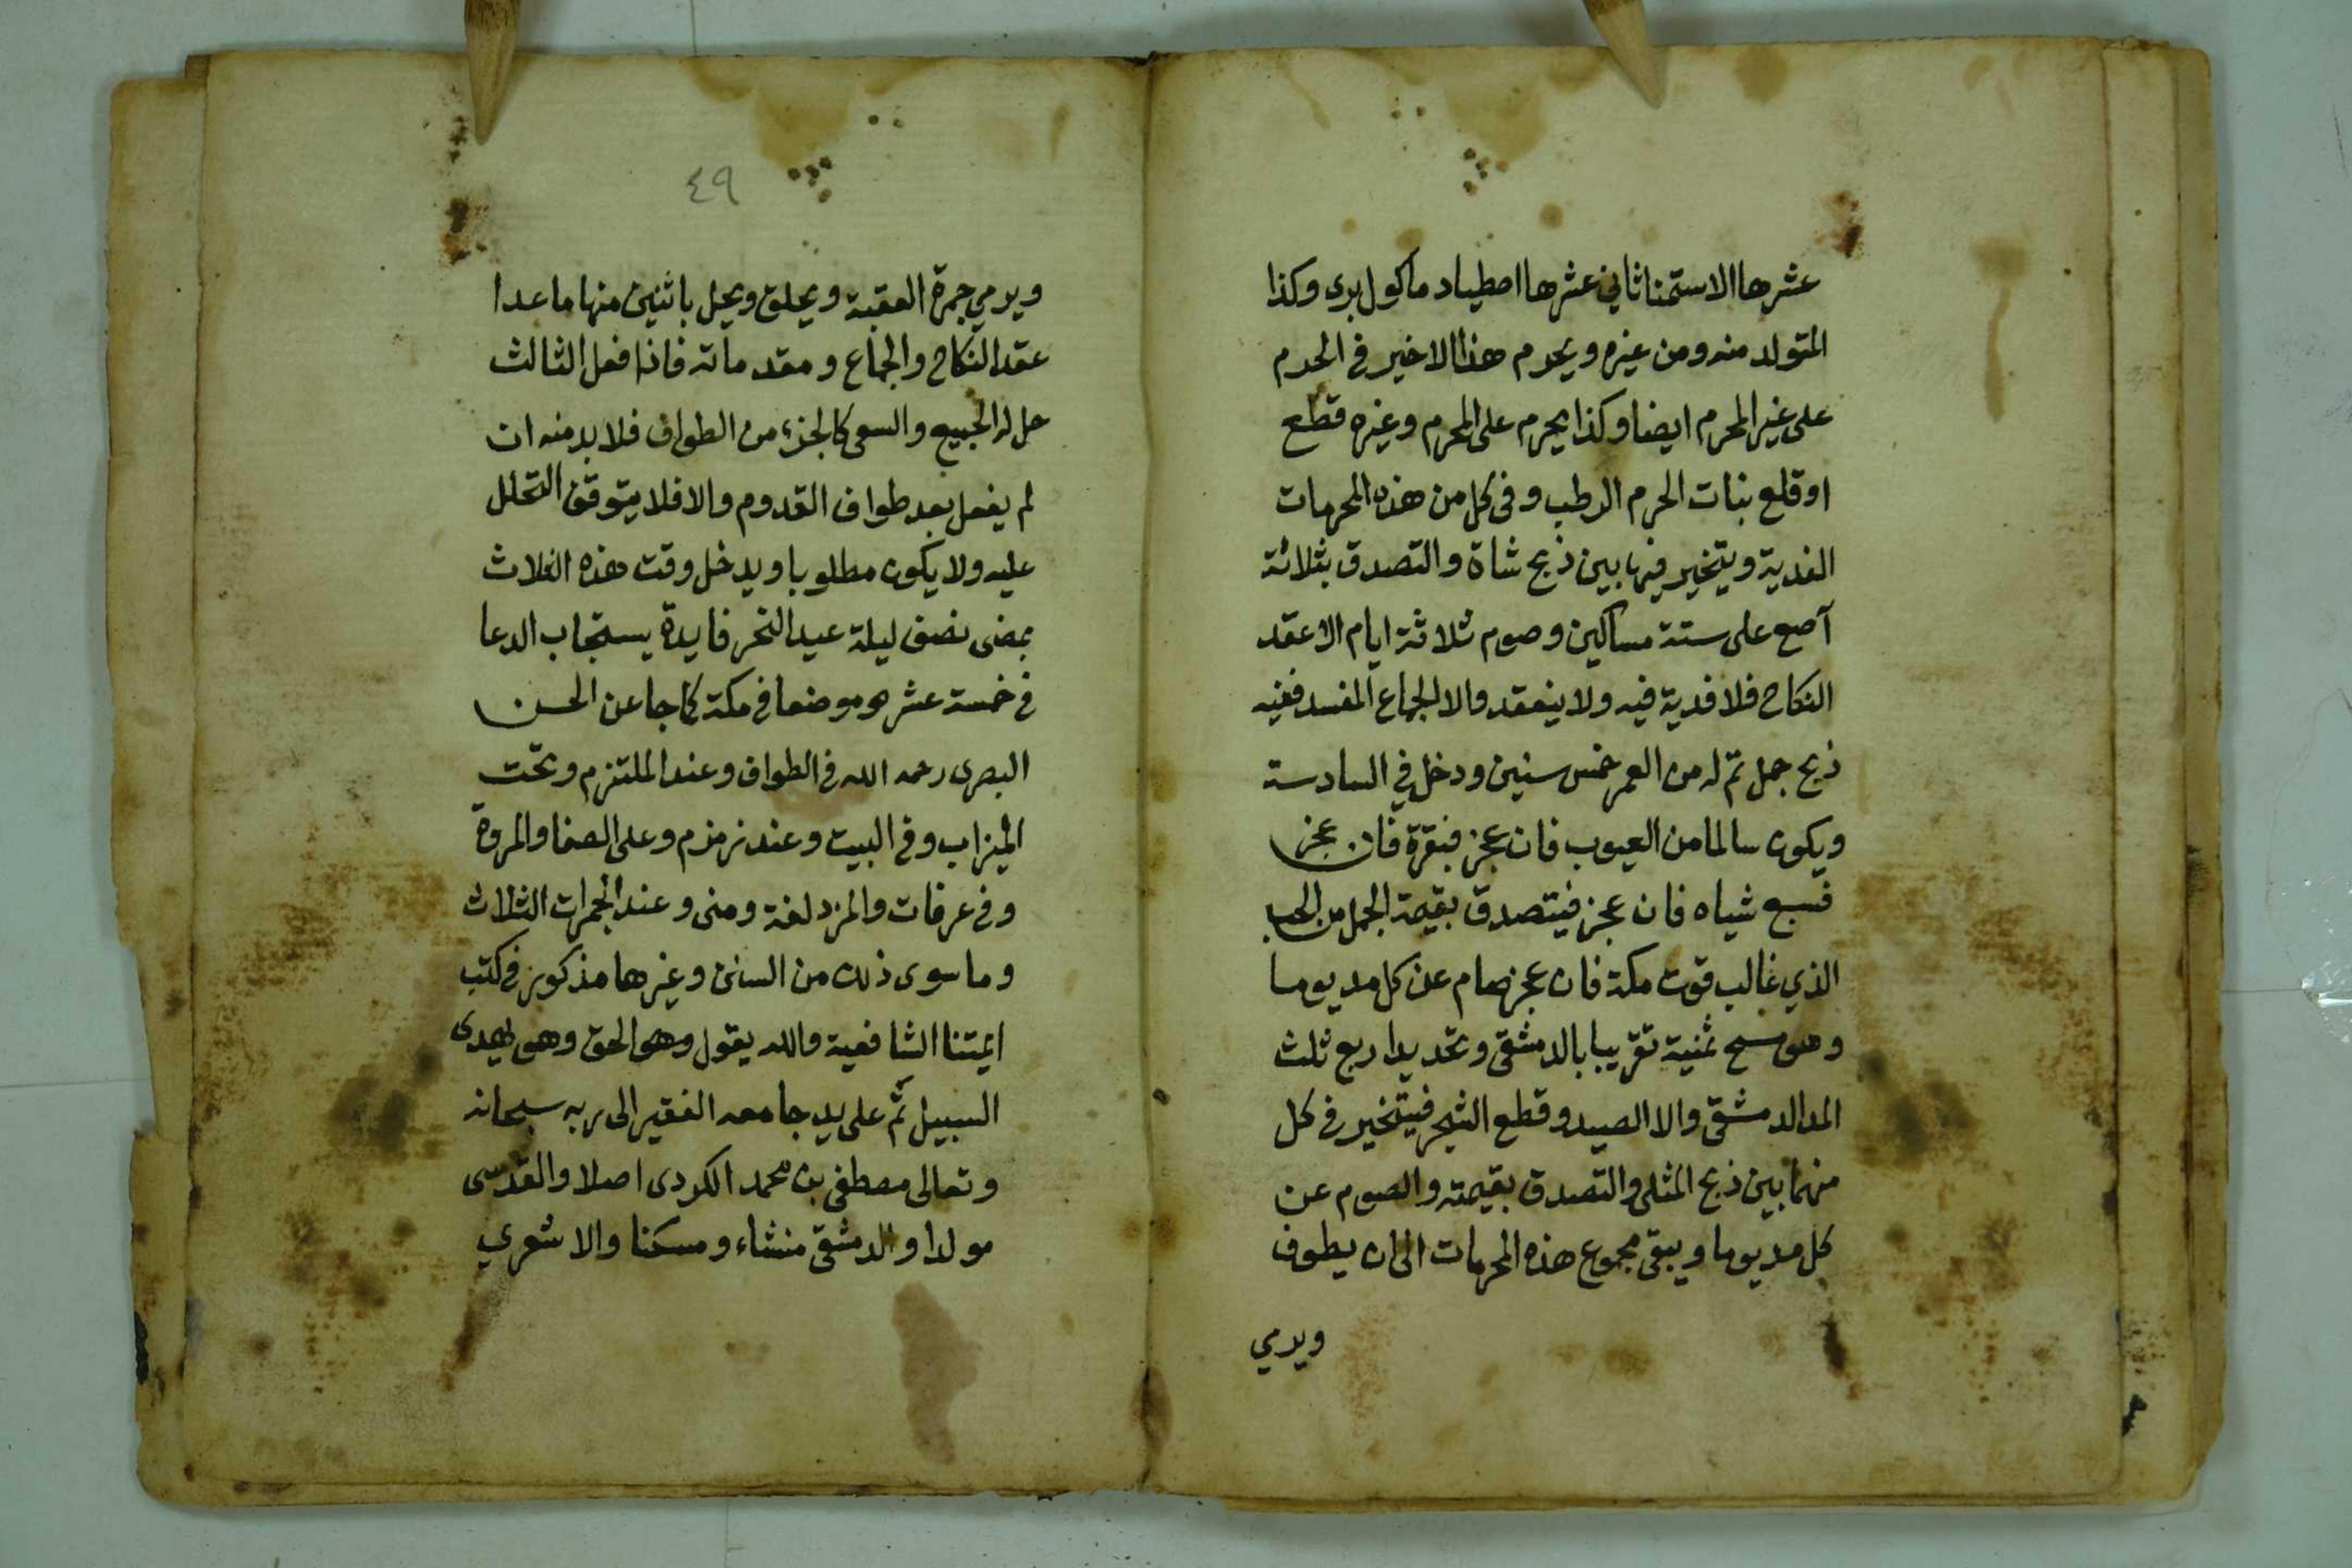 عشرها الاستمنا ثاني عشرها اصطياد ماكول برى وكذا
المتولد منه ومن غيره ويحرم هذا الاخير في الحرم
على غير المحرم ايضا وكذا يحرم على المحرم وغيره قطع
او قلع نبات الحرم الرطب وفى كل من هذه المحرمات
الفدية ويتخير فيها بين ذبح شاة والتصدق بثلاثة
آصع على ستة مساكين وصوم ثلاثة ايام الا عقد
النكاح فلا فدية فيه ولا ينعقد والا الجماع المفسد ففيه
ذبح جمل تم له من العمر خمس سنين ودخل في السادسة
ويكون سالما من العيوب فان عجز فبقرة فان عجز
فسبع شياه فان عجز فيتصدق بقيمة الجمل من الحب
الذي غالب قوت مكة فان عجز صام عن كل مد يوما
وهو مسح ثمنية تقريبا بالدمشقى وتحديدا ربع ثلث
المد الدمشقى والا الصيد وقطع الشجر فيتخير في كل
منهما بين ذبح المثلى والتصدق بقيمته والصوم عن
كل مد يوما ويبقى مجموع هذه المحرمات الى ان يطوف
ويرمي
٤٩
ويرمي جمرة العقبة ويحلق ويحل باثنين منها ما عدا
عقد النكاح والجماع ومقدماته فاذا فعل الثالث
حل له الجميع والسعى كالجزء من الطواف فلا بد منه ان
لم يفعل بعد طواف القدوم والا فلا يتوقف التحلل
عليه ولا يكون مطلوبا ويدخل وقت هذه الثلاث
بمضى نصف ليلة عيد النحر فايدة يستجاب الدعا
في خمسة عشر موضعا في مكة كما جا عن الحسن
البصرى رحمه الله في الطواف وعند الملتزم وتحت
الميزاب وفي البيت وعند زمزم وعلى الصفا والمروة
وفي عرفات والمزدلفة ومنى وعند الجمرات الثلاث
وما سوى ذلك من السنن وغيرها مذكور في كتب
ايمتنا الشافعية والله يقول وهو الحق وهو يهدى
السبيل تم على يد جامعه الفقير الى ربه سبحانه
وتعالى مصطفى بن محمد الكردى اصلا والقدسى
مولدا والدمشقى منشاء ومسكنا والاشعري